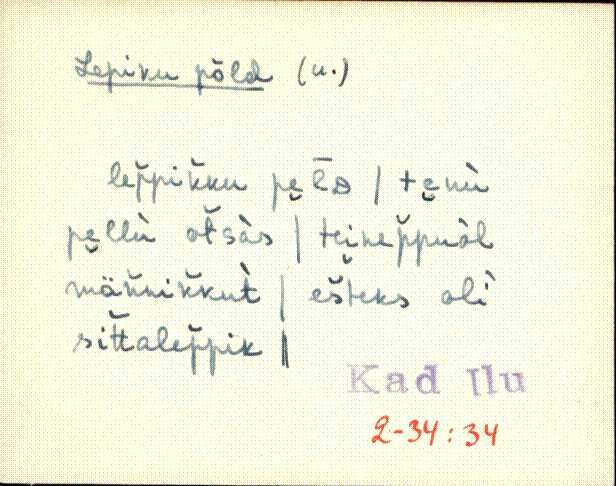 Lepiku põld (u.)
lep̆pik̆ku pe̮l̄D | te̮nù
pe̮llù ot̆sàs | tei̮nep̆puòl
män̆nik̆kut̀ | eš̆teks olì
sit̆taleppik ||
Kad Ilu
2-34:34